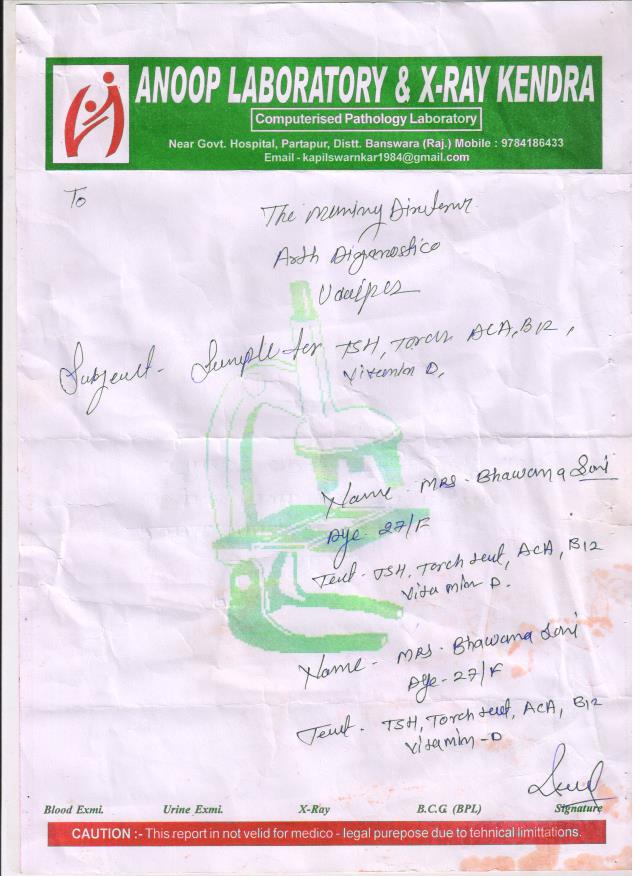 ANOOP LABORATORY & X-RAY KENDRA
Computerised Pathology Laboratory
Near Govt. Hospital, Partapur, Distt. Banswara (Raj.) Mobile : 9784186433
Email - kapilswarnkar1984@gmail.com
To
The
Arth Dignostico
Udaipur
Subject- Sample for TSH, Torch ACA, B12,
Vitamin D,
Name - MRS. Bhawana Soni
Age- 27/F
Test- TSH, Torch test, ACA, B12
Vitamin D.
Name - MRS. Bhawana Soni
Age-27/F
Test- TSH, Torch test, ACA, B12
Vitamin-D
Blood Exmi. Urine Exmi. X-Ray B.C.G. (BPL) Signature
CAUTION :- This report in not velid for medico - legal purepose due to tehnical limittations.